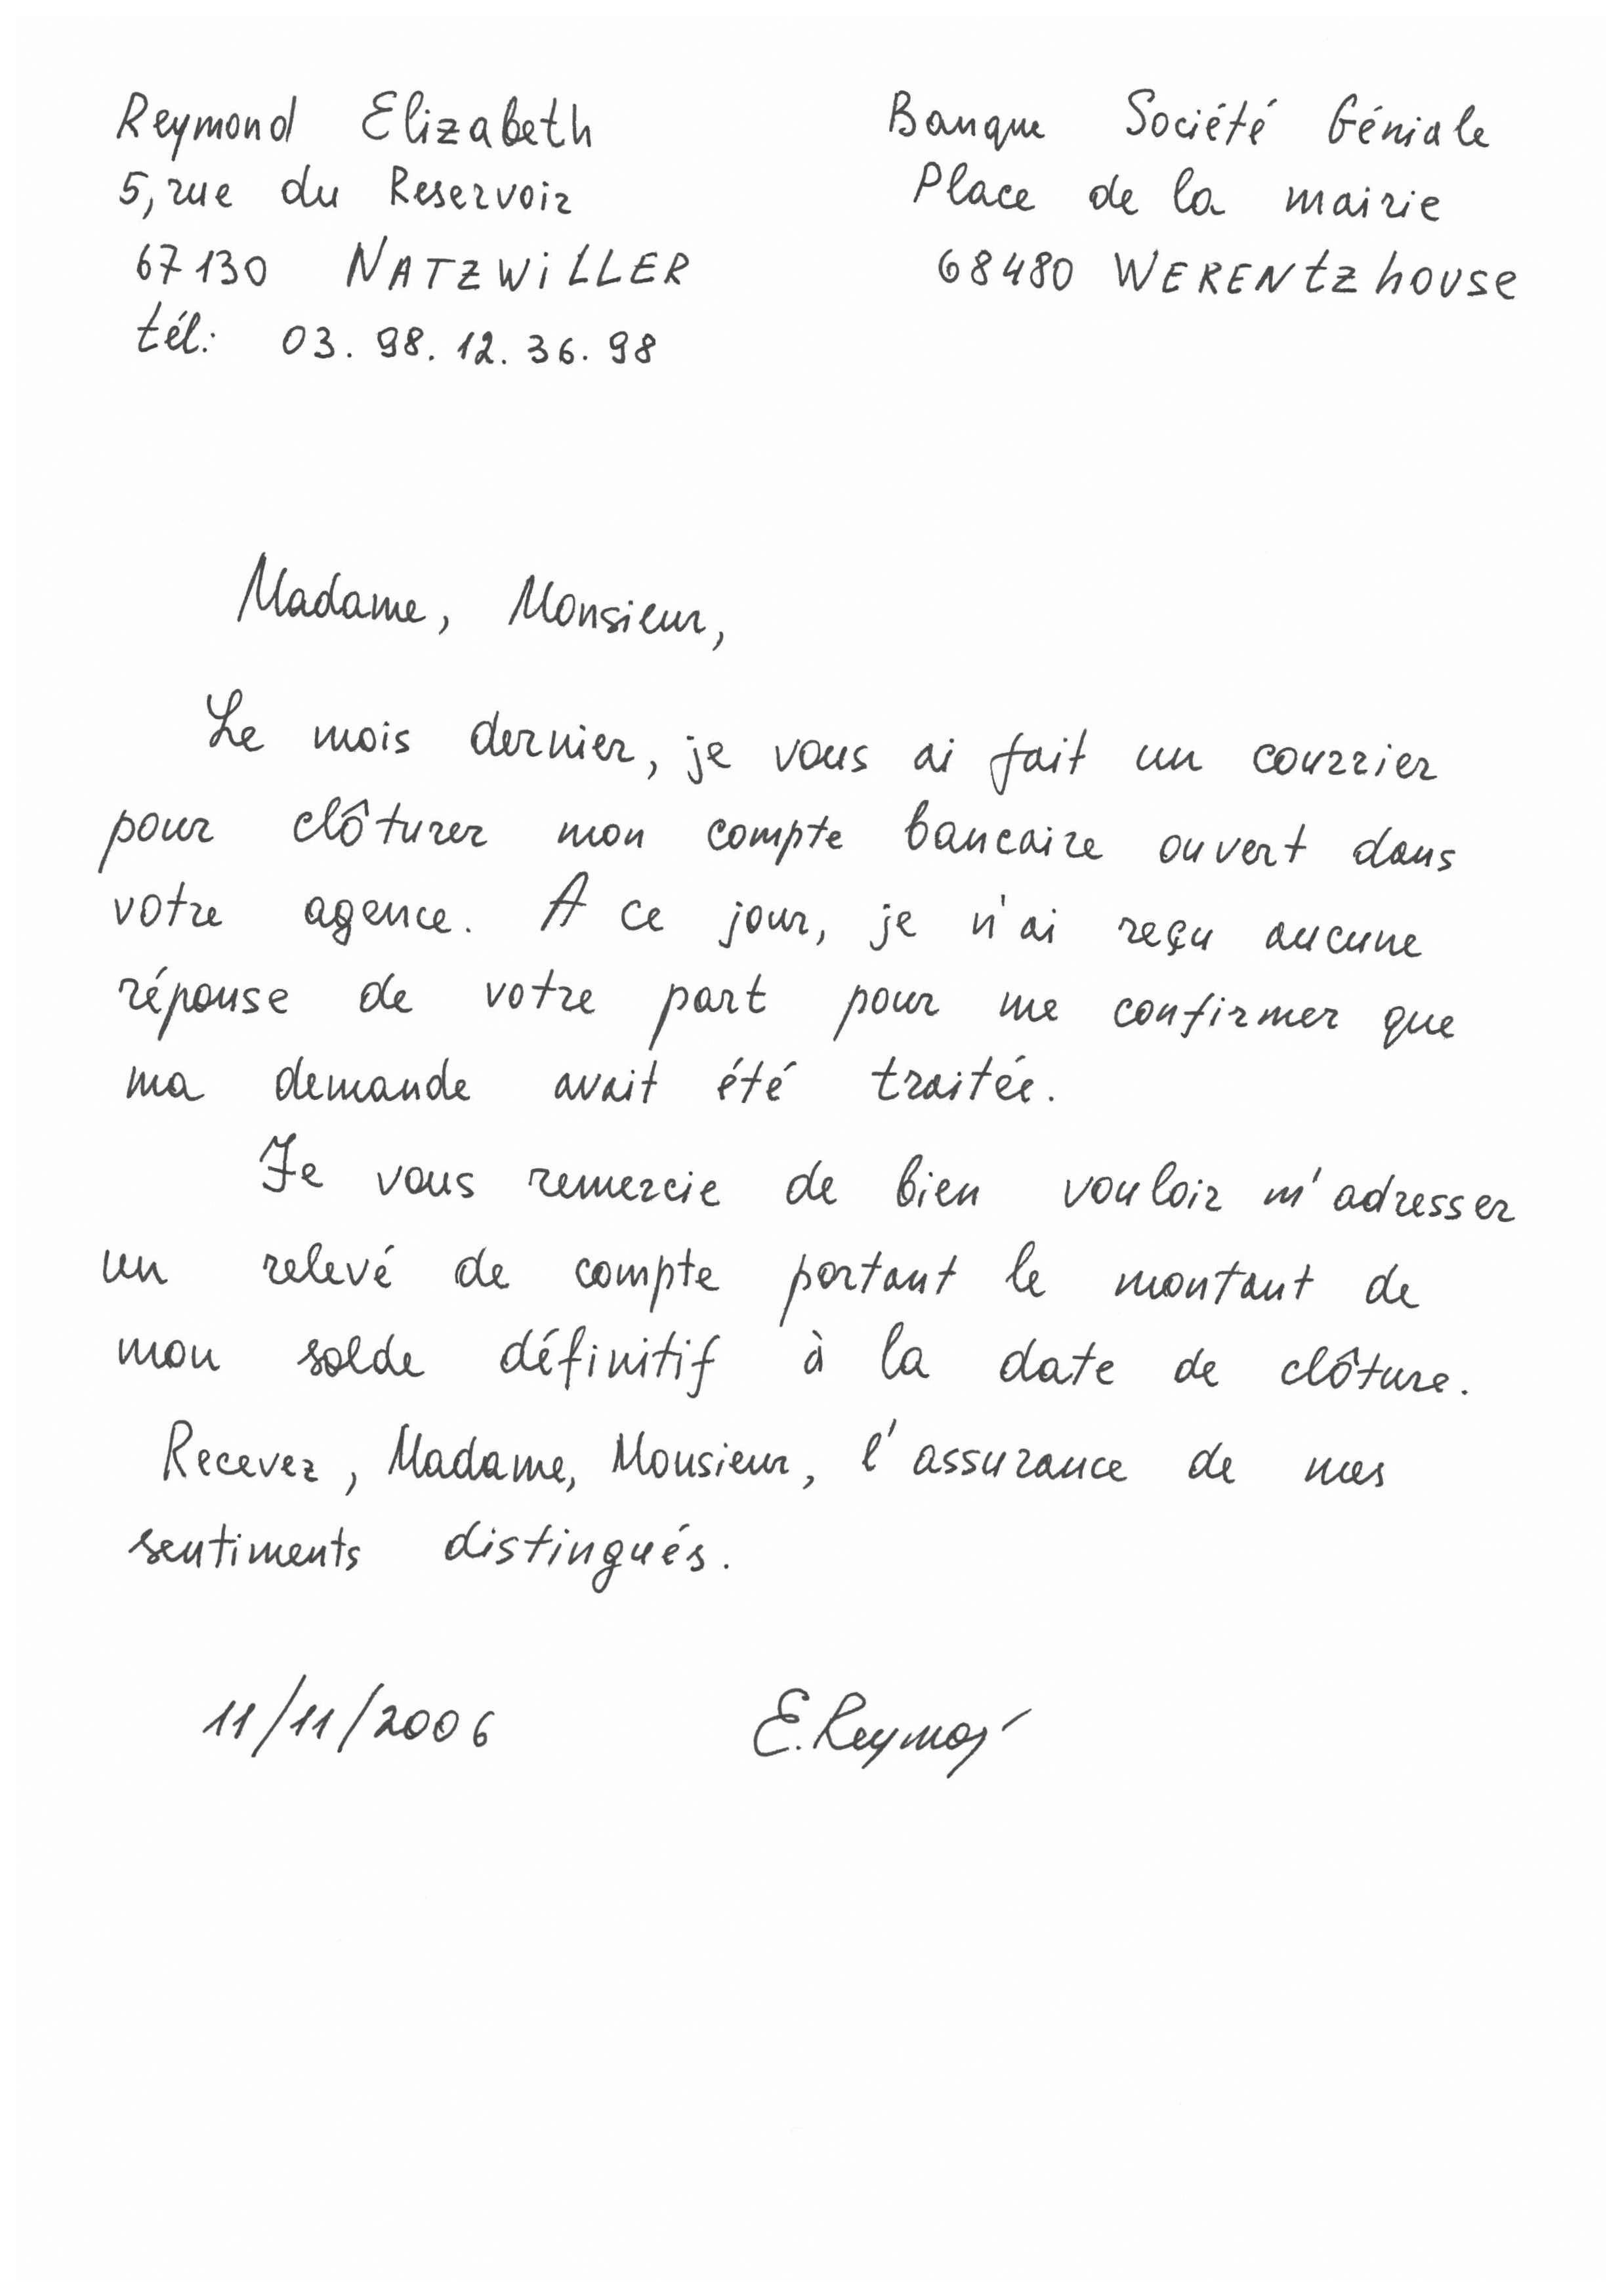 Reymond Elizabeth
5, rue du Reservoir
67130 NATZWiLLER
tél: 03. 98. 12. 36. 98
Banque Société Géniale
Place de la mairie
68480 WERENtzhouse
Madame, Monsieur,
Le mois dernier, je vous ai fait un courrier
pour clôturer mon compte bancaire ouvert dans
votre agence. A ce jour, je n'ai reçu aucune
réponse de votre part pour me confirmer que
ma demande avait été traitée.
Je vous remercie de bien vouloir m'adresser
un relevé de compte portant le montant de
mon solde définitif à la date de clôture.
Recevez, Madame, Monsieur, l'assurance de mes
sentiments distingués.
11/11/2006
E. Reymond